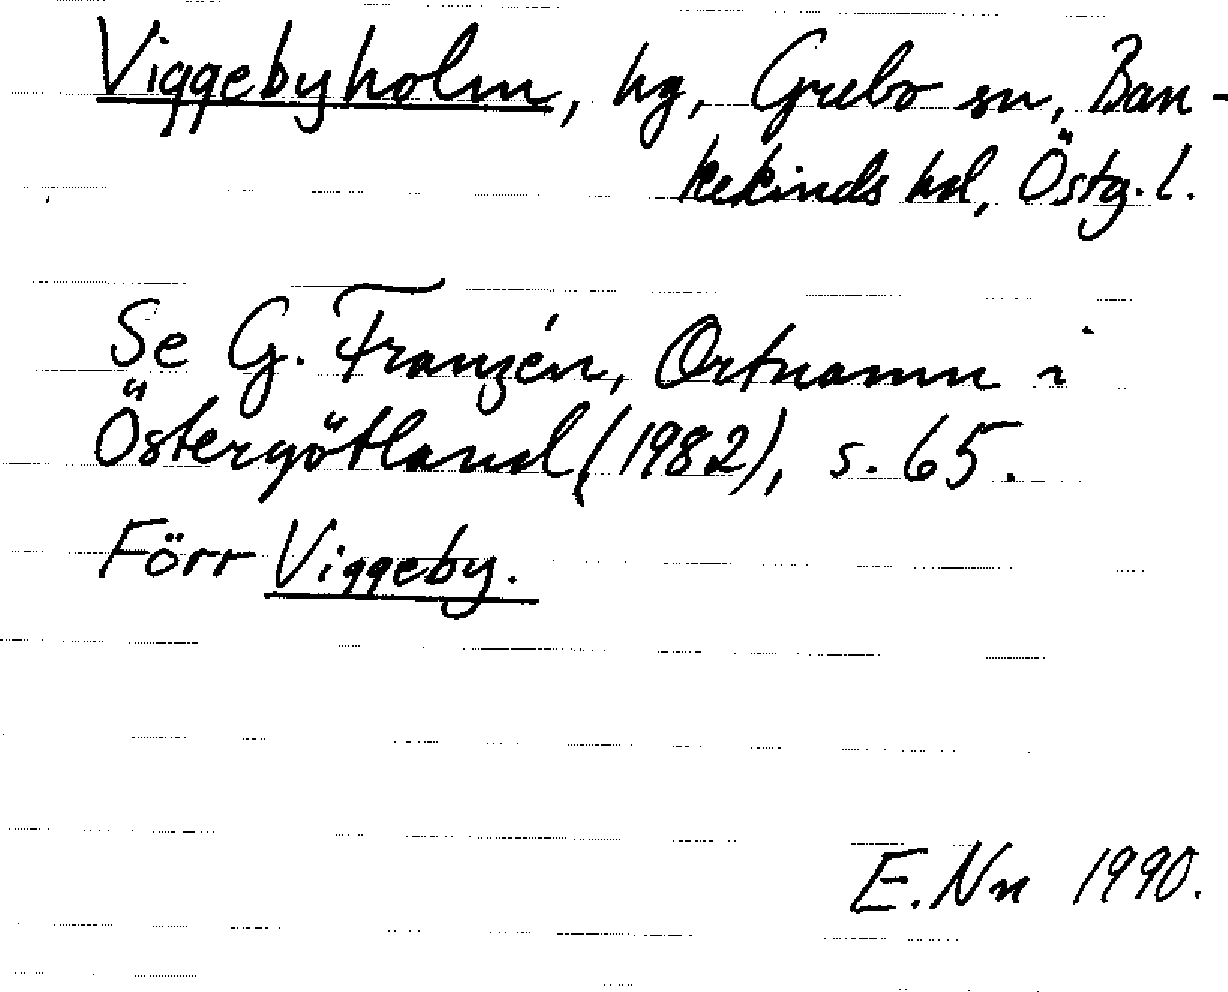 Viggebyholm, hg, Grebo sn, Ban-
kekinds hd, Östg. l.
Se G. Franzén, Ortnamn i
Östergötland (1982), s. 65.
Förr Viggeby.
E. Nn 1990.